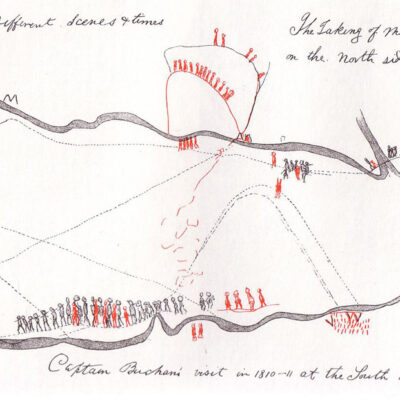 ifferent Scenes & times
The Taking of M
on the North sid
Captain Buchan's visit in 1810–11 at the South